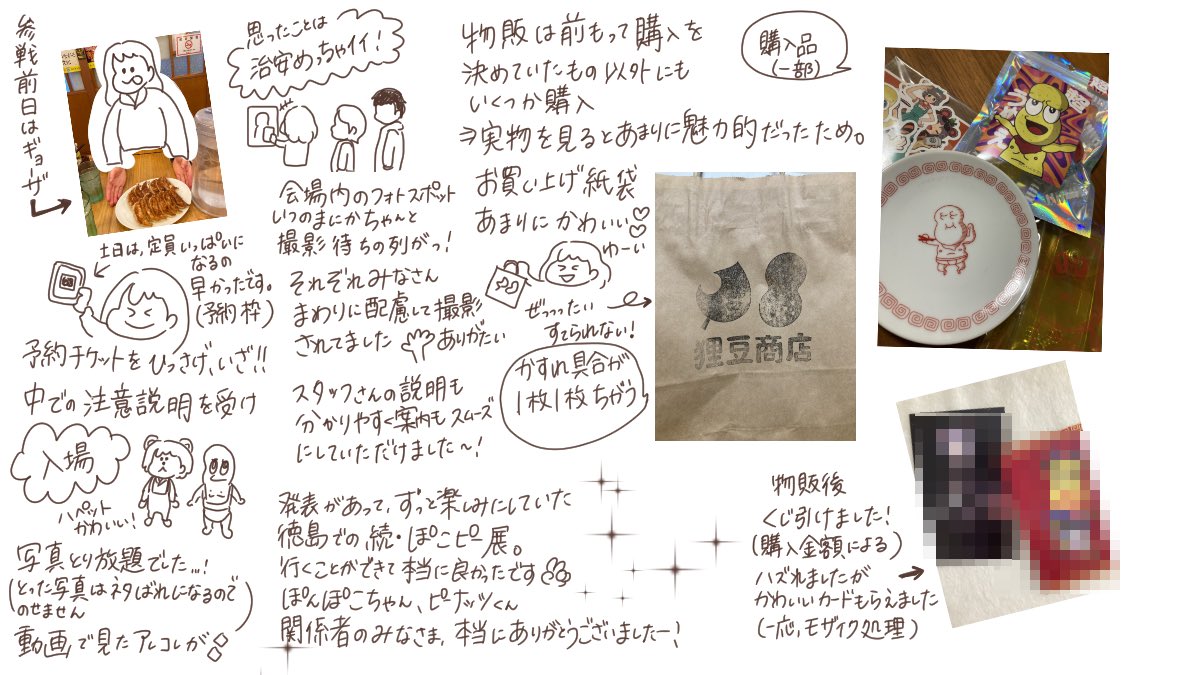 参戦前日はギョーザ
土日は、定員いっぱいに
なるの
早かったです。
(予約枠)
予約チケットをひっさげ、いざ!!
中での注意説明を受け
入場
パペット
かわいい!
写真とり放題でした…!
(とった写真はネタばれになるので
のせません)
動画で見たアレコレが
思ったことは
治安めっちゃイイ!
会場内のフォトスポット
いつのまにかちゃんと
撮影待ちの列がっ!
それぞれみなさん
まわりに配慮して撮影
されてました
ありがたい
スタッフさんの説明も
分かりやすく案内もスムーズ
にしていただけました〜!
発表があって、ずっと楽しみにしていた
徳島での、続・ぽこピー展。
行くことができて本当に良かったです
ぽんぽこちゃん、ピーナッツくん
関係者のみなさま、本当にありがとうございましたー!
物販は前もって購入を
決めていたもの以外にも
いくつか購入
⇒実物を見るとあまりに魅力的だったため。
購入品
(一部)
お買い上げ紙袋
あまりにかわいい♡
ゆーい
ぜっったい
すてられない!
かすれ具合が
1枚1枚ちがう
狸豆商店
物販後
くじ引けました!
(購入金額による)
ハズれましたが
かわいいカードもらえました
(一応、モザイク処理)